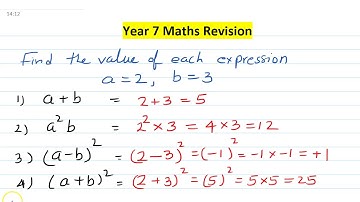 14:12
Year 7 Maths Revision
Find the value of each expression
a = 2, b = 3
1) a + b = 2 + 3 = 5
2) a² b = 2² × 3 = 4 × 3 = 12
3) (a - b)² = (2 - 3)² = (-1)² = -1 × -1 = +1
4) (a + b)² = (2 + 3)² = (5)² = 5 × 5 = 25